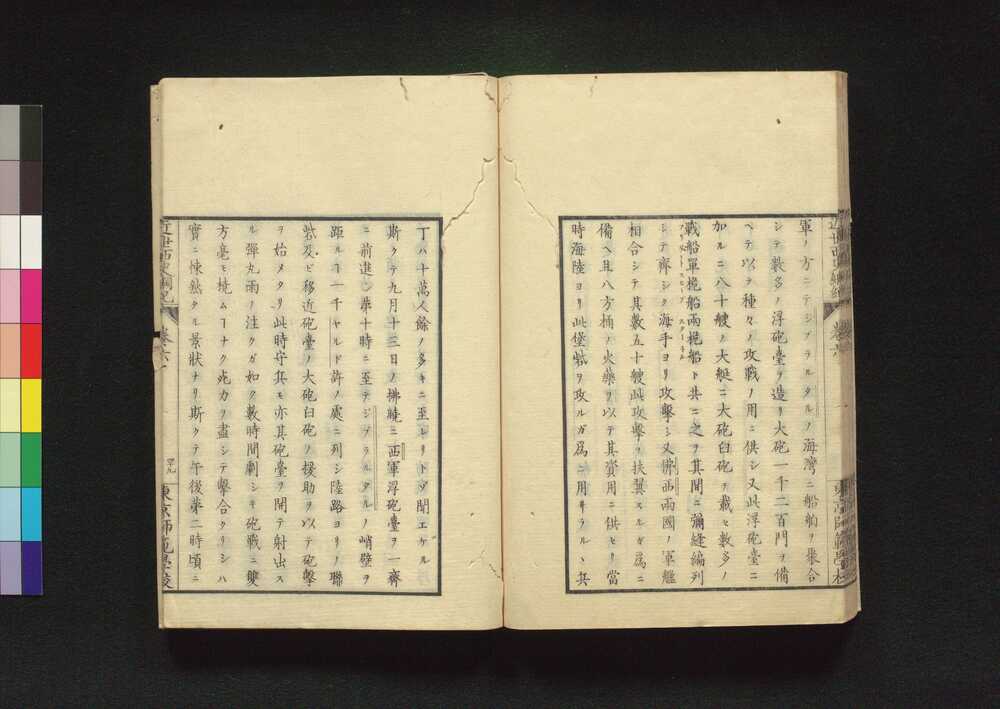 軍ノ方ニテジブラルタルノ海灣ニ船舶ヲ聚合
シテ數多ノ浮砲臺ヲ造リ大砲一千二百門ヲ備
ヘテ以テ種々ノ攻戰ノ用ニ供シ又此浮砲臺ニ
加ルニ八十艘ノ大艇ニ大砲臼砲ヲ載セ數多ノ
戰船單桅船兩桅船ト共ニ之ヲ其間ニ彌縫編列
シテ齊シク海手ヨリ攻擊シ又佛西兩國ノ軍艦
相合シテ其數五十艘此攻擊ヲ扶翼スルガ爲ニ
備ヘ且八方桶ノ火藥ヲ以テ其實用ニ供セリ當
時海陸ヨリ此堡砦ヲ攻ルガ爲ニ用キラルヽ兵
丁ハ十萬人餘ノ多キニ至レリトゾ聞エケル
斯クテ九月十三日ノ拂曉ニ西軍浮砲臺ヲ一齊
ニ前進シ第十時ニ至テジブラルタルノ峭壁ヲ
距ルヿ一千ヤルド許ノ處ニ列シ陸路ヨリノ聯
砦及ビ移近砲臺ノ大砲臼砲ノ援助ヲ以テ砲擊
ヲ始メタリ此時守兵モ亦其砲臺ヲ開テ射出ス
ル彈丸雨ノ注クガ如ク數時間劇シキ砲戰ニ雙
方毫モ撓ムヿナク死力ヲ盡シテ擊合タリシハ
實ニ悚然タル景狀ナリ斯クテ午後第二時頃ニ
近世西史綱紀
卷六
四十九
東京師範學校